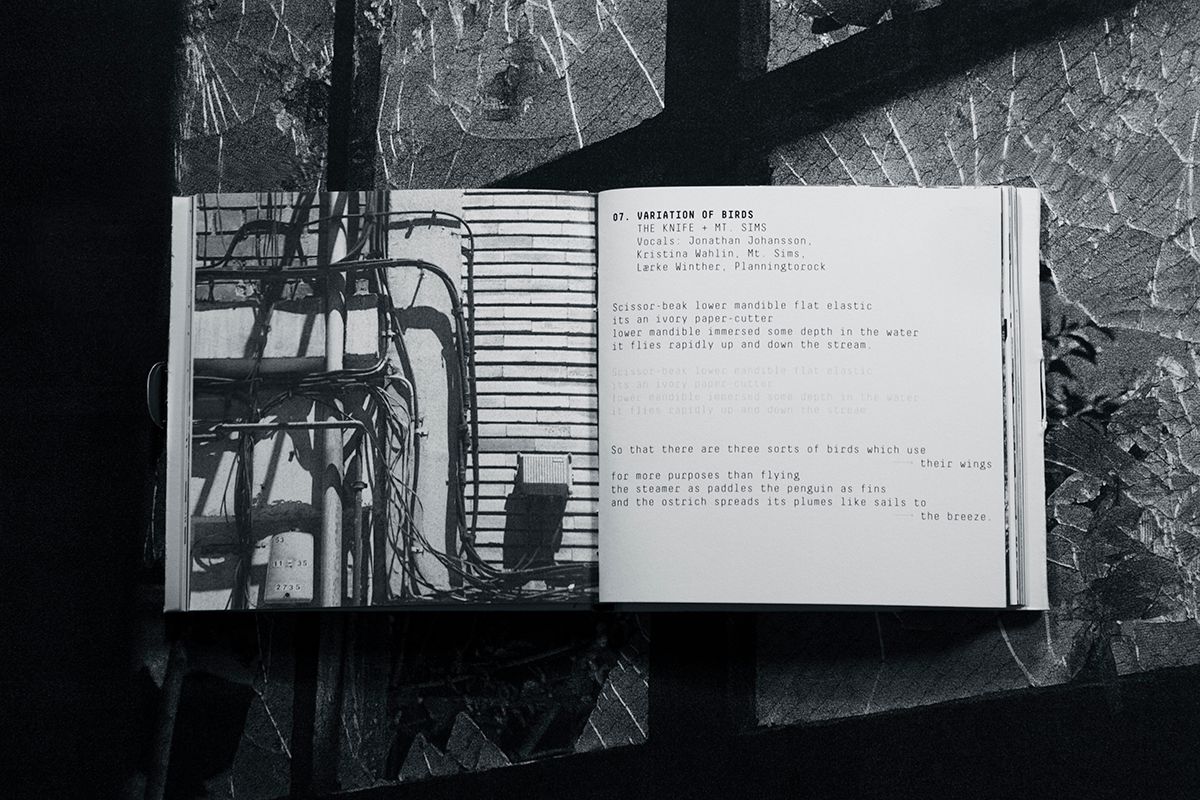 33
11 35
2735
07. VARIATION OF BIRDS
THE KNIFE + MT. SIMS
Vocals: Jonathan Johansson,
Kristina Wahlin, Mt. Sims,
Lærke Winther, Planningtorock
Scissor-beak lower mandible flat elastic
its an ivory paper-cutter
lower mandible immersed some depth in the water
it flies rapidly up and down the stream.
Scissor-beak lower mandible flat elastic
its an ivory paper-cutter
lower mandible immersed some depth in the water
it flies rapidly up and down the stream.
So that there are three sorts of birds which use
their wings
for more purposes than flying
the steamer as paddles the penguin as fins
and the ostrich spreads its plumes like sails to
the breeze.